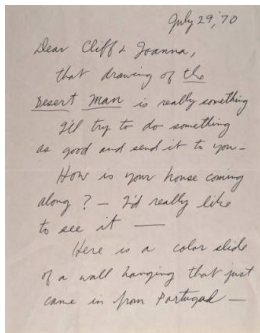 July 29, '70
Dear Cliff & Joanna,
that drawing of the
Desert Man is really something
I'll try to do something
as good and send it to you—
How is your house coming
along? — I'd really like
to see it —
Here is a color slide
of a wall hanging that just
came in from Portugal —